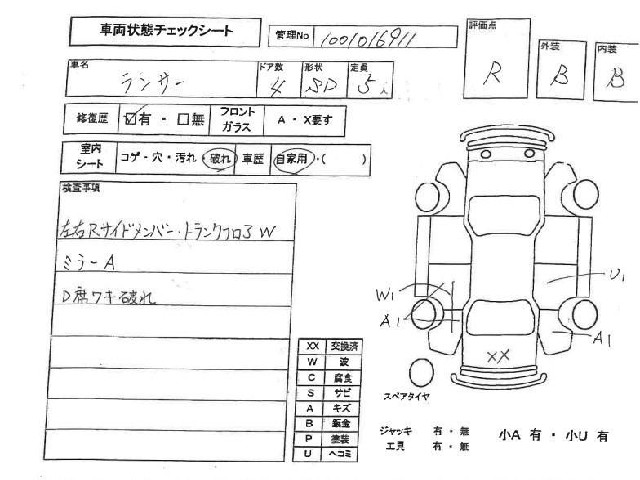 車両状態チェックシート 管理No 1001016911
評価点 R
外装 B
内装 B
車名 ランサー ドア数 4 形状 SD 定員 5人
修復歴 ☑有・□無 フロントガラス A・X要す
室内シート コゲ・穴・汚れ・破れ 車歴 自家用・( )
検査事項
左右Rサイドメンバー・トランクフロS W
ミラーA
D席ワキ破れ
W1
A1
U1
A1
XX
XX 交換済
W 波
C 腐食
S サビ
A キズ
B 鈑金
P 塗装
U ヘコミ
スペアタイヤ
ジャッキ 有・無
工具 有・無
小A 有・小U 有